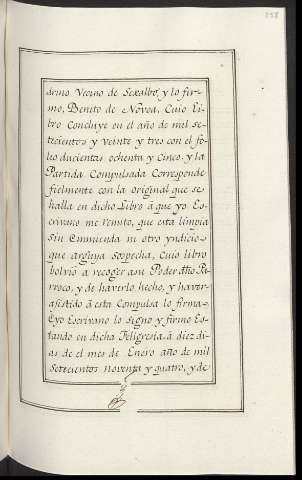 258
drino Vecino de Sexalbo, y lo fir-
mo, Benito de Nóvoa, Cuio Li-
bro Concluye en el año de mil se-
tecientos y Veinte y tres con el fo-
lio ducientas ochenta y Cinco. y la
Partida Compulsada Corresponde
fielmente con la original que se
halla en dicho Libro à que yo Es-
crivano me remito, que esta limpia
Sin Enmienda ni otro yndicio
que arguya Sospecha, Cuio libro
bolvió a recoger asu Poder dho Pa-
rroco, y de haverlo hecho, y haver
asistido á esta Compulsa lo firma
Eyo Escrivano lo Segno y firmo Es-
tando en dicha Feligresia, à diez di-
as de el mes de Enero año de mil
Setecientos noventa y quatro, y de